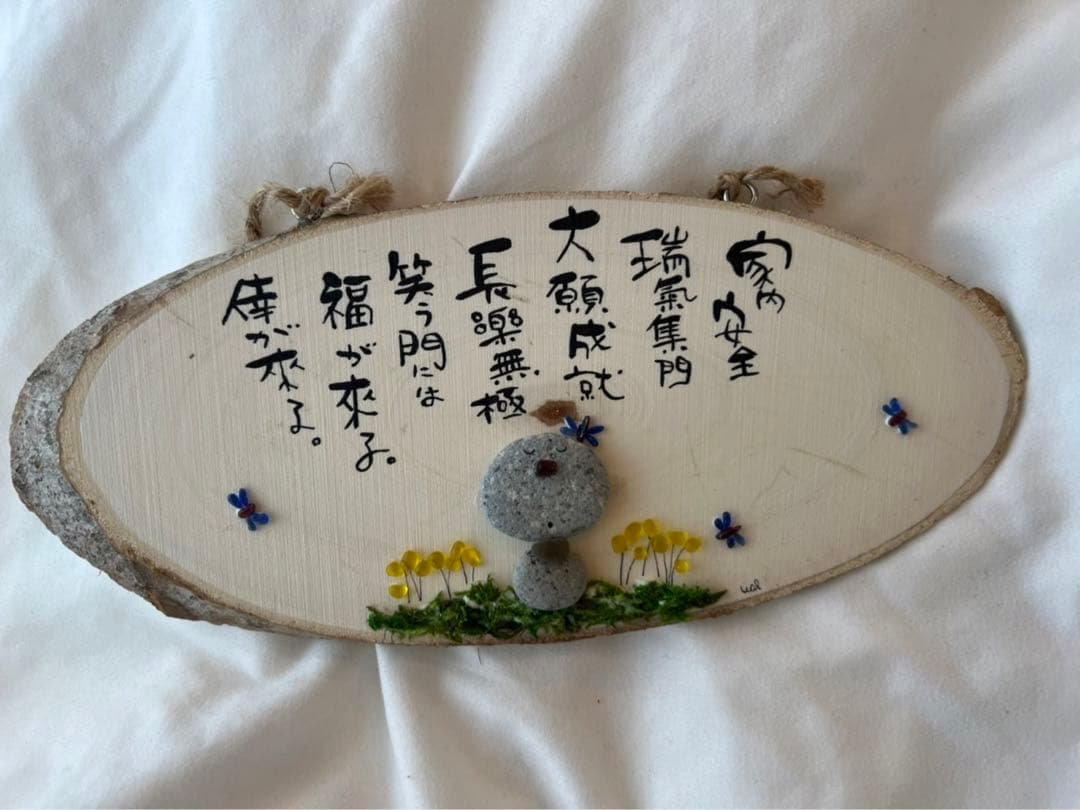 家内安全
瑞氣集門
大願成就
長樂無極
笑う門には
福が來る。
倖が來る。